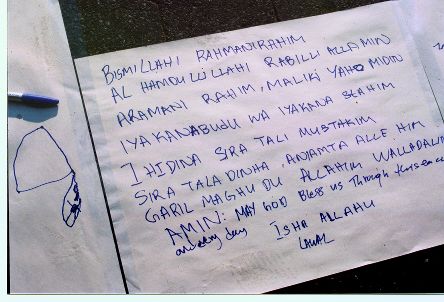 BISMILLAHI RAHMANIRAHIM
AL HAMDULILLAHI RABILLI ALLAMIN
ARAMANI RAHIM, MALIKI YAHOMIDIN
IYAKANABUDU WA IYAKANA STAHIM
IHIDINA SIRA TALI MUSTAKIM
SIRA TALADINHA, ANJAMTA ALLE HIM
GARIL MAGHUDU ALLAHIM WALLADALIN
AMIN: MAY GOD Bless us Through
and every day ISHA ALLAHU